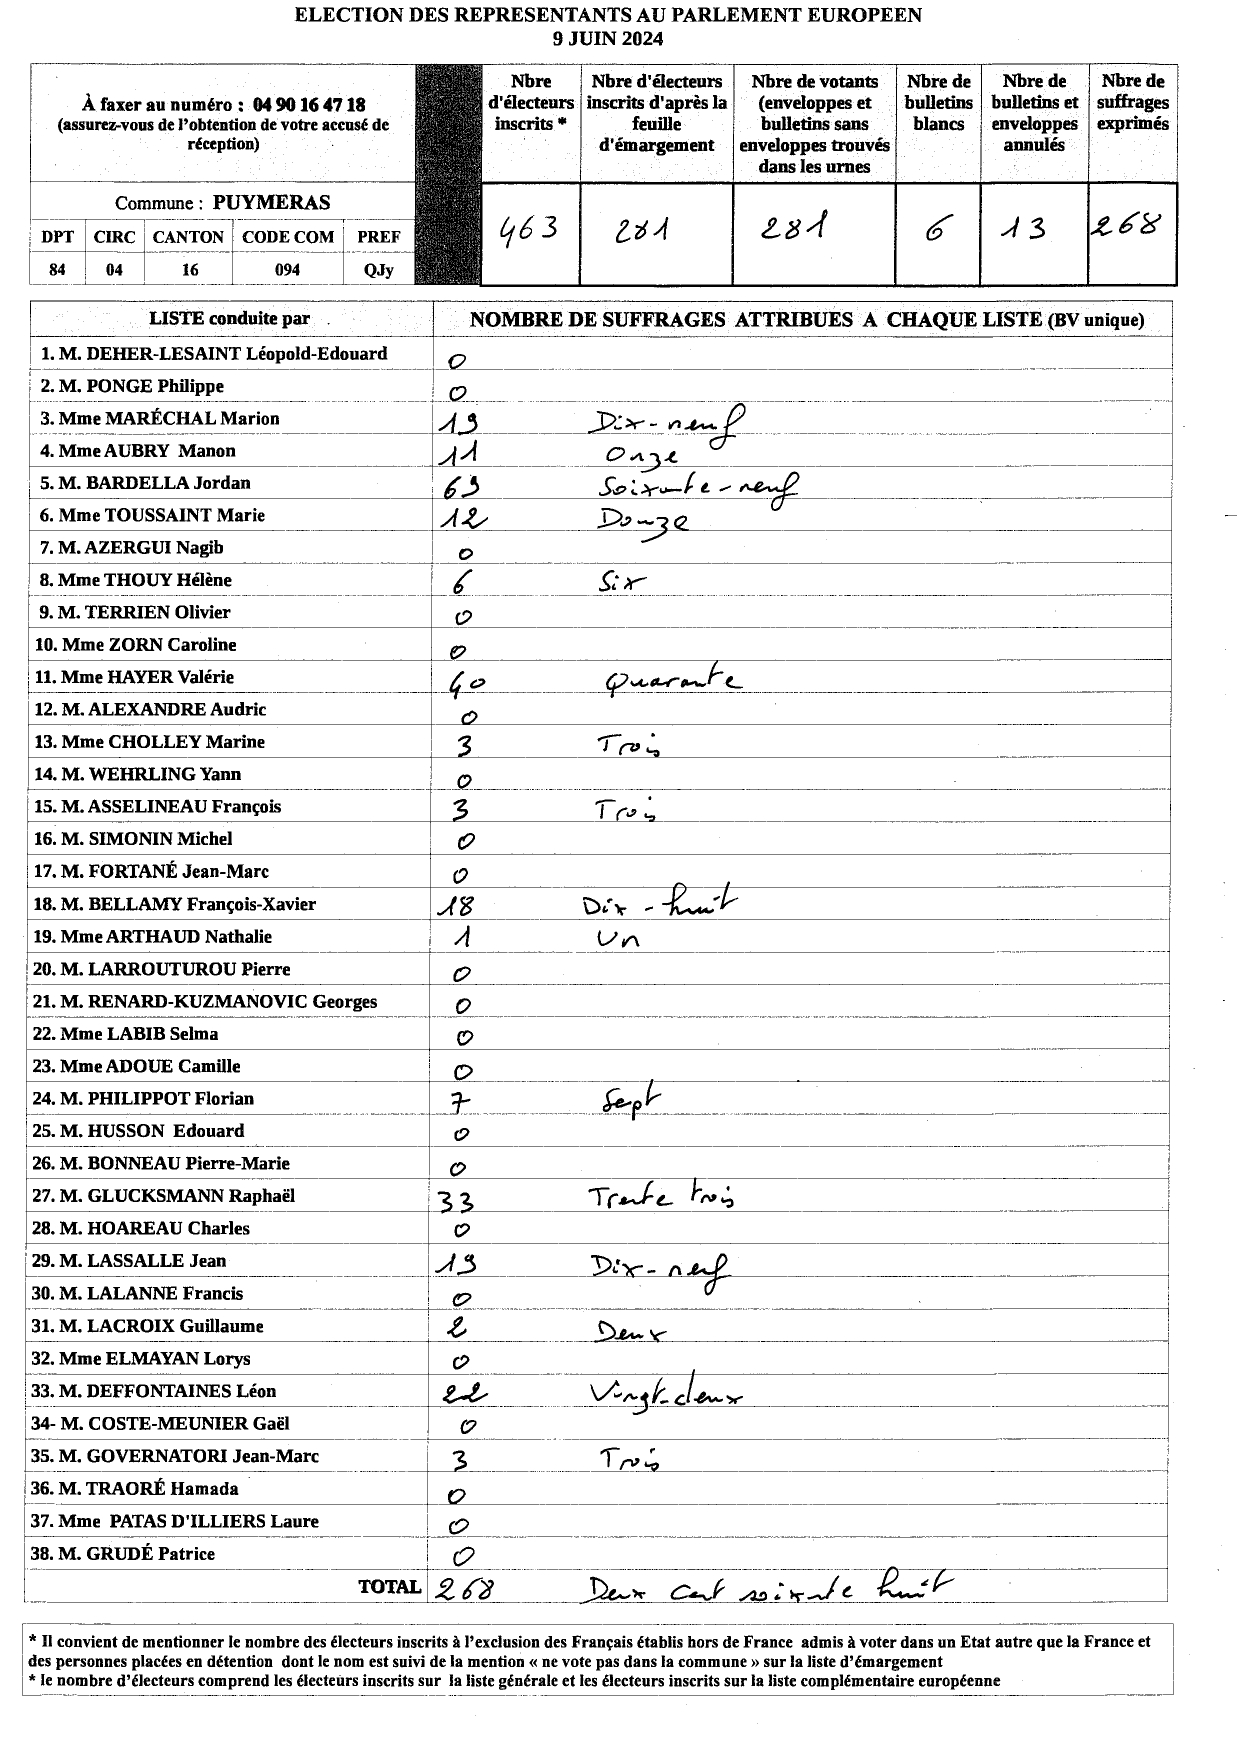 ELECTION DES REPRESENTANTS AU PARLEMENT EUROPEEN
9 JUIN 2024
À faxer au numéro : 04 90 16 47 18
(assurez-vous de l'obtention de votre accusé de
réception)
Nbre
d'électeurs
inscrits *
Nbre d'électeurs
inscrits d'après la
feuille
d'émargement
Nbre de votants
(enveloppes et
bulletins sans
enveloppes trouvés
dans les urnes
Nbre de
bulletins
blancs
Nbre de
bulletins et
enveloppes
annulés
Nbre de
suffrages
exprimés
Commune : PUYMERAS
DPT CIRC CANTON CODE COM PREF
84 04 16 094 QJy
463 281 281 6 13 268
LISTE conduite par NOMBRE DE SUFFRAGES ATTRIBUES A CHAQUE LISTE (BV unique)
1. M. DEHER-LESAINT Léopold-Edouard 0
2. M. PONGE Philippe 0
3. Mme MARÉCHAL Marion 19 Dix-neuf
4. Mme AUBRY Manon 11 Onze
5. M. BARDELLA Jordan 69 Soixante-neuf
6. Mme TOUSSAINT Marie 12 Douze
7. M. AZERGUI Nagib 0
8. Mme THOUY Hélène 6 Six
9. M. TERRIEN Olivier 0
10. Mme ZORN Caroline 0
11. Mme HAYER Valérie 40 Quarante
12. M. ALEXANDRE Audric 0
13. Mme CHOLLEY Marine 3 Trois
14. M. WEHRLING Yann 0
15. M. ASSELINEAU François 3 Trois
16. M. SIMONIN Michel 0
17. M. FORTANÉ Jean-Marc 0
18. M. BELLAMY François-Xavier 18 Dix-huit
19. Mme ARTHAUD Nathalie 1 Un
20. M. LARROUTUROU Pierre 0
21. M. RENARD-KUZMANOVIC Georges 0
22. Mme LABIB Selma 0
23. Mme ADOUE Camille 0
24. M. PHILIPPOT Florian 7 Sept
25. M. HUSSON Edouard 0
26. M. BONNEAU Pierre-Marie 0
27. M. GLUCKSMANN Raphaël 33 Trente trois
28. M. HOAREAU Charles 0
29. M. LASSALLE Jean 19 Dix-neuf
30. M. LALANNE Francis 0
31. M. LACROIX Guillaume 2 Deux
32. Mme ELMAYAN Lorys 0
33. M. DEFFONTAINES Léon 22 Vingt-deux
34- M. COSTE-MEUNIER Gaël 0
35. M. GOVERNATORI Jean-Marc 3 Trois
36. M. TRAORÉ Hamada 0
37. Mme PATAS D'ILLIERS Laure 0
38. M. GRUDÉ Patrice 0
TOTAL 268 Deux cent soixante huit
* Il convient de mentionner le nombre des électeurs inscrits à l'exclusion des Français établis hors de France admis à voter dans un Etat autre que la France et
des personnes placées en détention dont le nom est suivi de la mention « ne vote pas dans la commune » sur la liste d'émargement
* le nombre d'électeurs comprend les électeurs inscrits sur la liste générale et les électeurs inscrits sur la liste complémentaire européenne